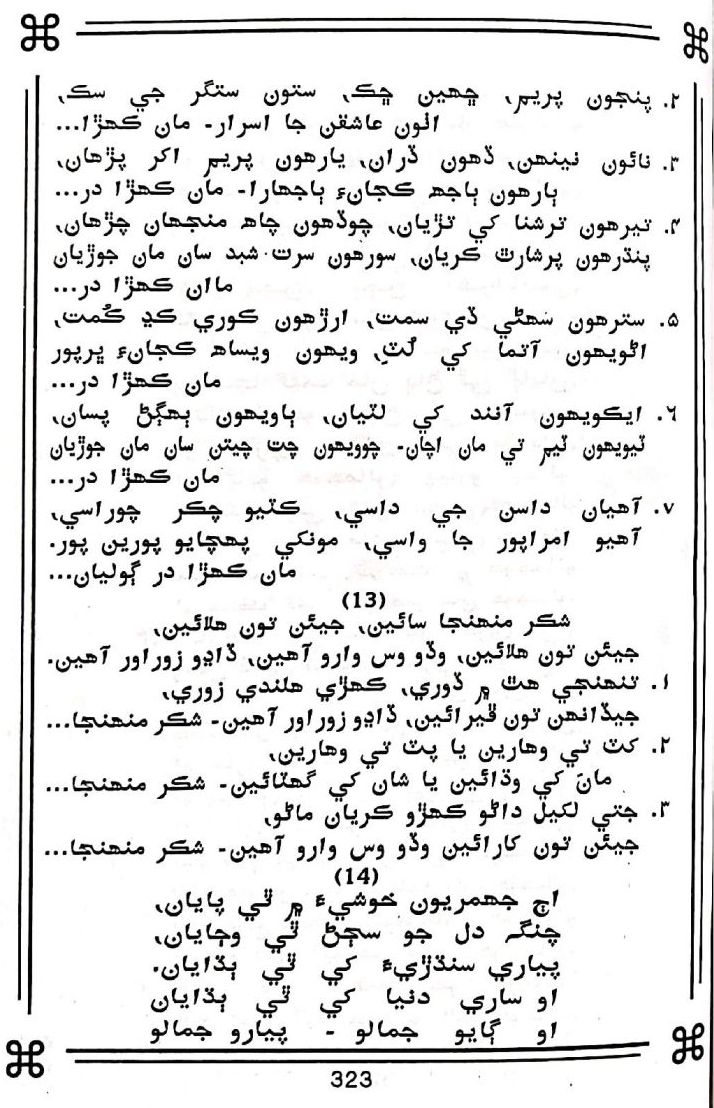 ٢. پنجون پريم، ڇهين ڇڪ، ستون ستگر جي سڪ،
اٺون عاشقن جا اسرار- مان ڪهڙا...
٣. نائون نينهن، ڏهون ڏران، يارهون پريم اکر پڙهان،
ٻارهون ٻاجھ ڪجانءِ ٻاجهارا- مان ڪهڙا در...
۴. تيرهون ترشنا کي تڙيان، چوڏهون چاھ منجهان چڙهان،
پنڌرهون پرشارٿ ڪريان، سورهون سرت شبد سان مان جوڙيان
ماان ڪهڙا در...
۵. سترهون سَهڻي ڏي سمت، ارڙهون کوري ڪڍ ڪُمت،
اڻويهون آتما کي لُٽِ، ويهون ويساھ ڪجانءِ ڀرپور
مان ڪهڙا در...
٦. ايڪويهون آنند کي لٽيان، ٻاويهون ٻهڳڻ پسان،
ٽيويهون ٽيم تي مان اچان- چوويهون چت چيتن سان مان جوڙيان
مان ڪهڙا در...
٧. آهيان داسن جي داسي، ڪٽيو چڪر چوراسي،
آهيو امراپور جا واسي، مونکي پهچايو پورين پور.
مان ڪهڙا در ڳوليان...
(13)
شڪر منهنجا سائين، جيئن تون هلائين،
جيئن تون هلائين، وڏو وس وارو آهين، ڏاڍو زوراور آهين.
١. تنهنجي هٿ ۾ ڏوري، ڪهڙي هلندي زوري،
جيڏانهن تون ڦيرائين، ڏاڍو زوراور آهين- شڪر منهنجا...
٢. کٽ تي وهارين يا پٽ تي وهارين،
مانَ کي وڌائين يا شان کي گهٽائين- شڪر منهنجا...
٣. جتي لکيل داڻو ڪهڙو ڪريان ماڻو،
جيئن تون ڪارائين وڏو وس وارو آهين- شڪر منهنجا...
(14)
اڄ جهمريون خوشيءَ ۾ ٿي پايان،
چنگہ دل جو سڄڻ ٿي وڄايان،
پياري سنڌڙيءَ کي ٿي ٻڌايان.
او ساري دنيا کي ٿي ٻڌايان
او ڳايو جمالو - پيارو جمالو
323